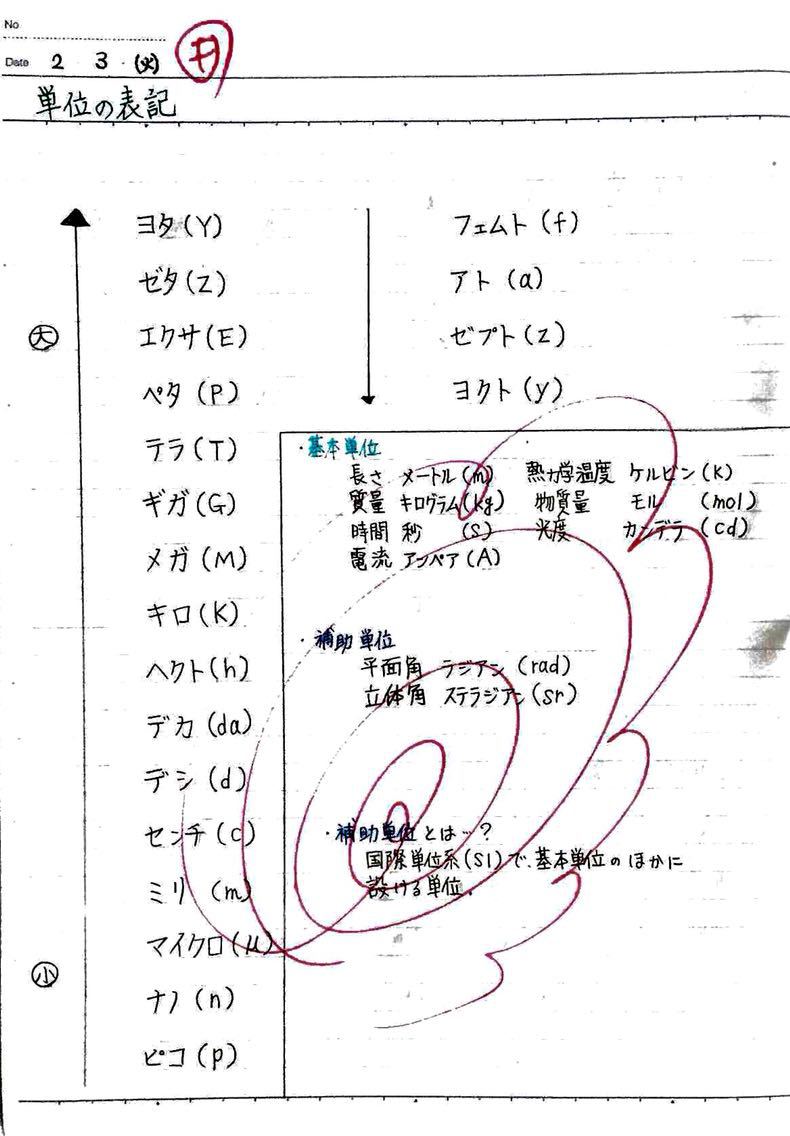 No
Date 2 3 (火)
単位の表記
ヨタ(Y)
ゼタ(Z)
大
エクサ(E)
ペタ(P)
テラ(T)
ギガ(G)
メガ(M)
キロ(K)
ヘクト(h)
デカ(da)
デシ(d)
センチ(c)
ミリ(m)
マイクロ(μ)
小
ナノ(n)
ピコ(p)
フェムト(f)
アト(a)
ゼプト(z)
ヨクト(y)
・基本単位
長さ メートル(m) 熱力学温度 ケルビン(K)
質量 キログラム(kg) 物質量 モル (mol)
時間 秒 (S) 光度 カンデラ(cd)
電流 アンペア(A)
・補助単位
平面角 ラジアン(rad)
立体角 ステラジアン(sr)
・補助単位とは…?
国際単位系(SI)で、基本単位のほかに
設ける単位.